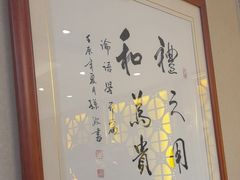 禮之用
和為貴
論語學而篇
年夏月孫書